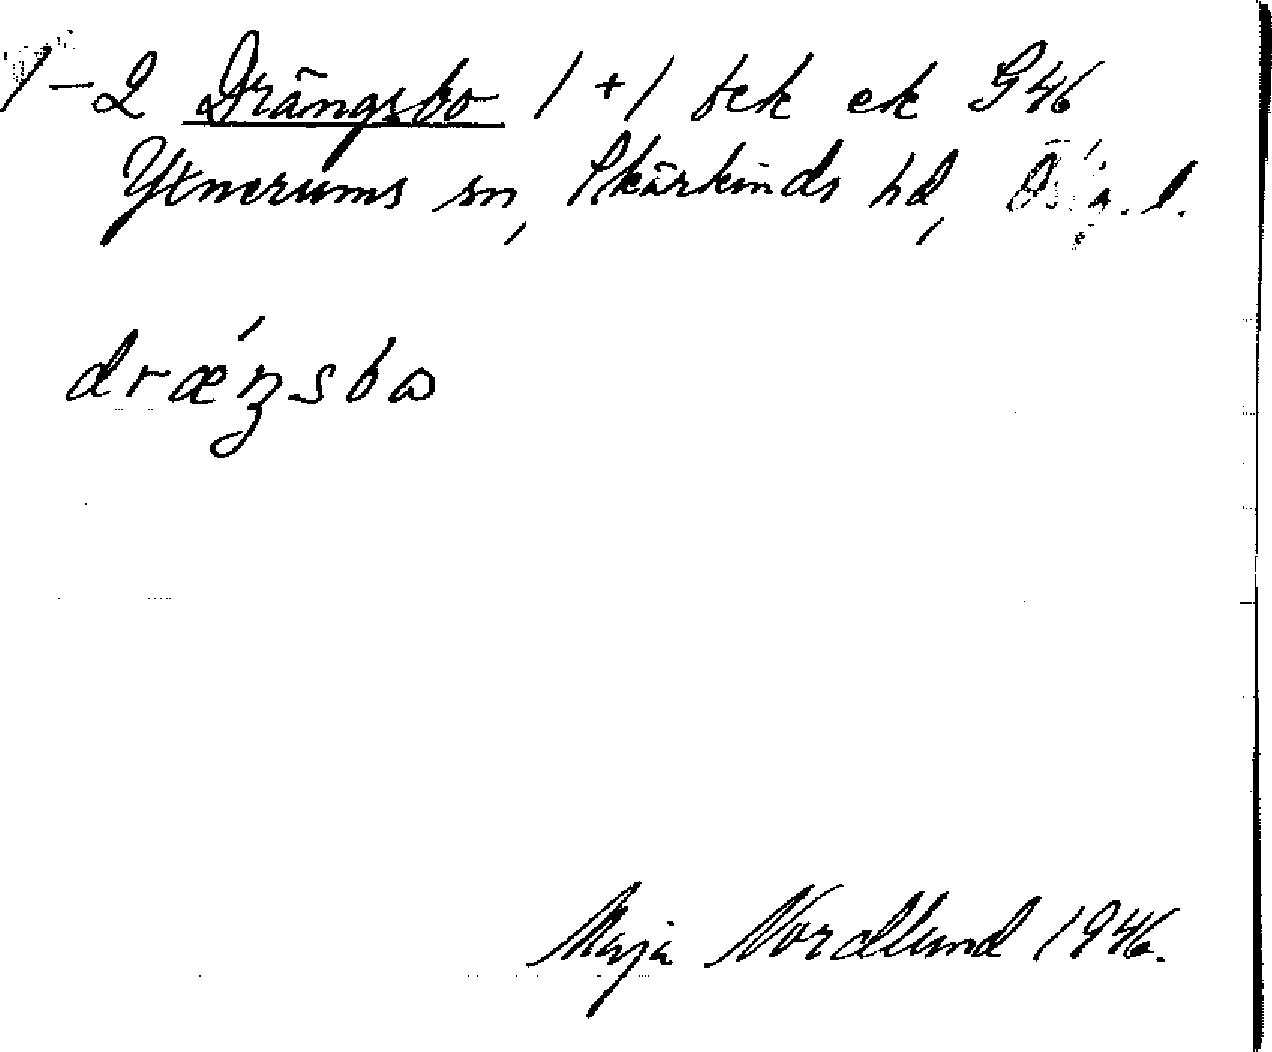 1-2 Drängsbo 1+1 bek ek G46
Yxnerums sn, Skärkinds hd, Östg. l.
drǽŋsbo
Maja Nordlund 1946.